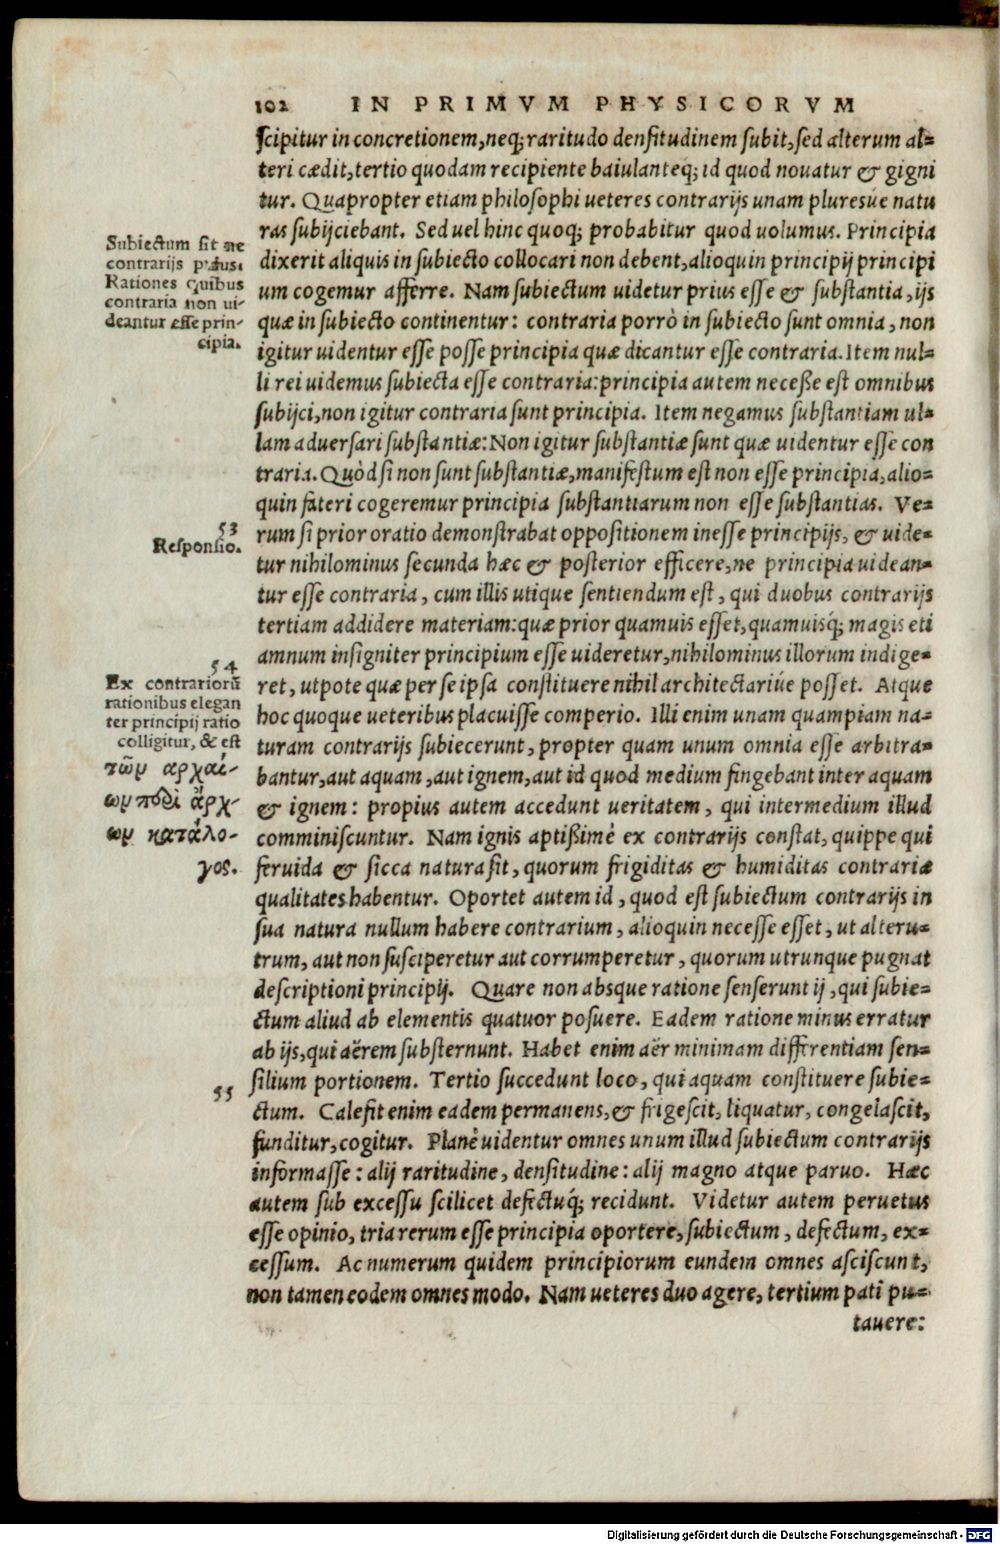 102 IN PRIMVM PHYSICORVM
scipitur in concretionem, neq; raritudo densitudinem subit, sed alterum al-
teri cædit, tertio quodam recipiente baiulanteq; id quod nouatur & gigni
tur. Quapropter etiam philosophi ueteres contrarijs unam pluresúe natu
ras subijciebant. Sed uel hinc quoq; probabitur quod uolumus. Principia
dixerit aliquis in subiecto collocari non debent, alioquin principij principi
um cogemur afferre. Nam subiectum uidetur prius esse & substantia, ijs
quæ in subiecto continentur: contraria porrò in subiecto sunt omnia, non
igitur uidentur esse posse principia quæ dicantur esse contraria. Item nul-
li rei uidemus subiecta esse contraria: principia autem necesse est omnibus
subijci, non igitur contraria sunt principia. Item negamus substantiam ul-
lam aduersari substantiæ: Non igitur substantiæ sunt quæ uidentur esse con
traria. Quòd si non sunt substantiæ, manifestum est non esse principia, alio-
quin fateri cogeremur principia substantiarum non esse substantias. Ve-
rum si prior oratio demonstrabat oppositionem inesse principijs, & uide-
tur nihilominus secunda hæc & posterior efficere, ne principia uidean-
tur esse contraria, cum illis utique sentiendum est, qui duobus contrarijs
tertiam addidere materiam: quæ prior quamuis esset, quamuisq́; magis eti
amnum insigniter principium esse uideretur, nihilominus illorum indige-
ret, utpote quæ per se ipsa constituere nihil architectariúe posset. Atque
hoc quoque ueteribus placuisse comperio. Illi enim unam quampiam na-
turam contrarijs subiecerunt, propter quam unum omnia esse arbitra-
bantur, aut aquam, aut ignem, aut id quod medium fingebant inter aquam
& ignem: propius autem accedunt ueritatem, qui intermedium illud
comminiscuntur. Nam ignis aptissimè ex contrarijs constat, quippe qui
feruida & sicca natura sit, quorum frigiditas & humiditas contrariæ
qualitates habentur. Oportet autem id, quod est subiectum contrarijs in
sua natura nullum habere contrarium, alioquin necesse esset, ut alteru-
trum, aut non susciperetur aut corrumperetur, quorum utrunque pugnat
descriptioni principij. Quare non absque ratione senserunt ij, qui subie-
ctum aliud ab elementis quatuor posuere. Eadem ratione minus erratur
ab ijs, qui aërem substernunt. Habet enim aër minimam differentiam sen-
silium portionem. Tertio succedunt loco, qui aquam constituere subie-
ctum. Calefit enim eadem permanens, & frigescit, liquatur, congelascit,
funditur, cogitur. Planè uidentur omnes unum illud subiectum contrarijs
informasse: alij raritudine, densitudine: alij magno atque paruo. Hæc
autem sub excessu scilicet defectuq́; recidunt. Videtur autem peruetus
esse opinio, tria rerum esse principia oportere, subiectum, defectum, ex-
cessum. Ac numerum quidem principiorum eundem omnes asciscunt,
non tamen eodem omnes modo. Nam ueteres duo agere, tertium pati pu-
tauere:
Subiectum sit ne
contrarijs prius.
Rationes quibus
contraria non ui-
deantur esse prin-
cipia.
53
Responsio.
54
Ex contrariorū
rationibus elegan
ter principij ratio
colligitur, & est
τῶν ἀρχαί-
ων περὶ ἀρχ-
ων κατάλο-
γος.
55
Digitalisierung gefördert durch die Deutsche Forschungsgemeinschaft - DFG